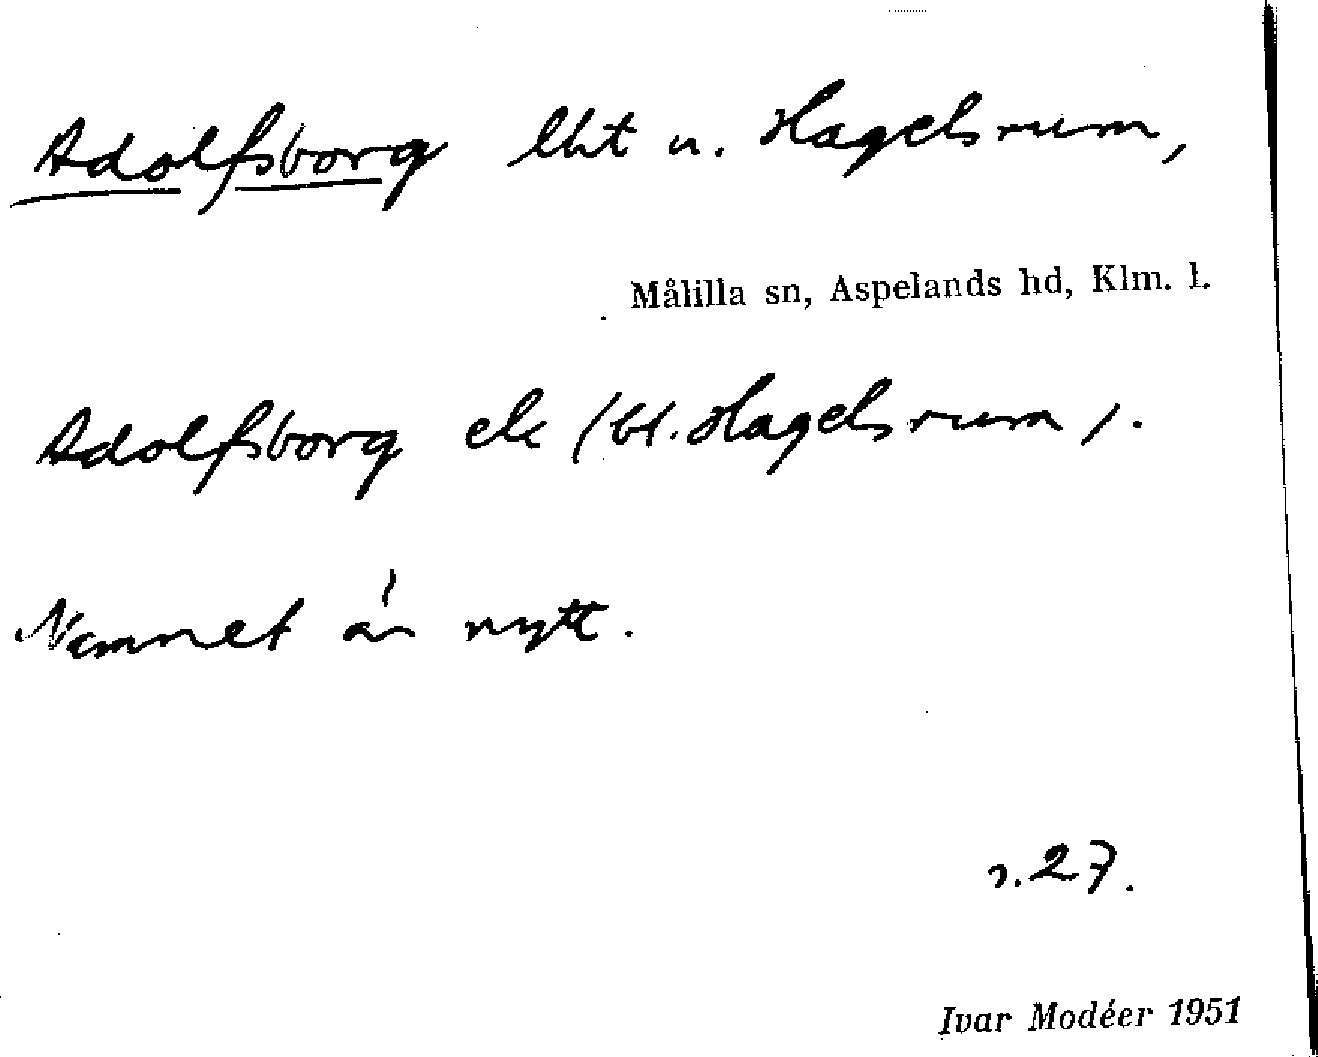 Adolfsborg lht u. Hagelsrum,
Målilla sn, Aspelands hd, Klm. l.
Adolfsborg ek (bl. Hagelsrum).
Namnet är nytt.
s. 27.
Ivar Modéer 1951